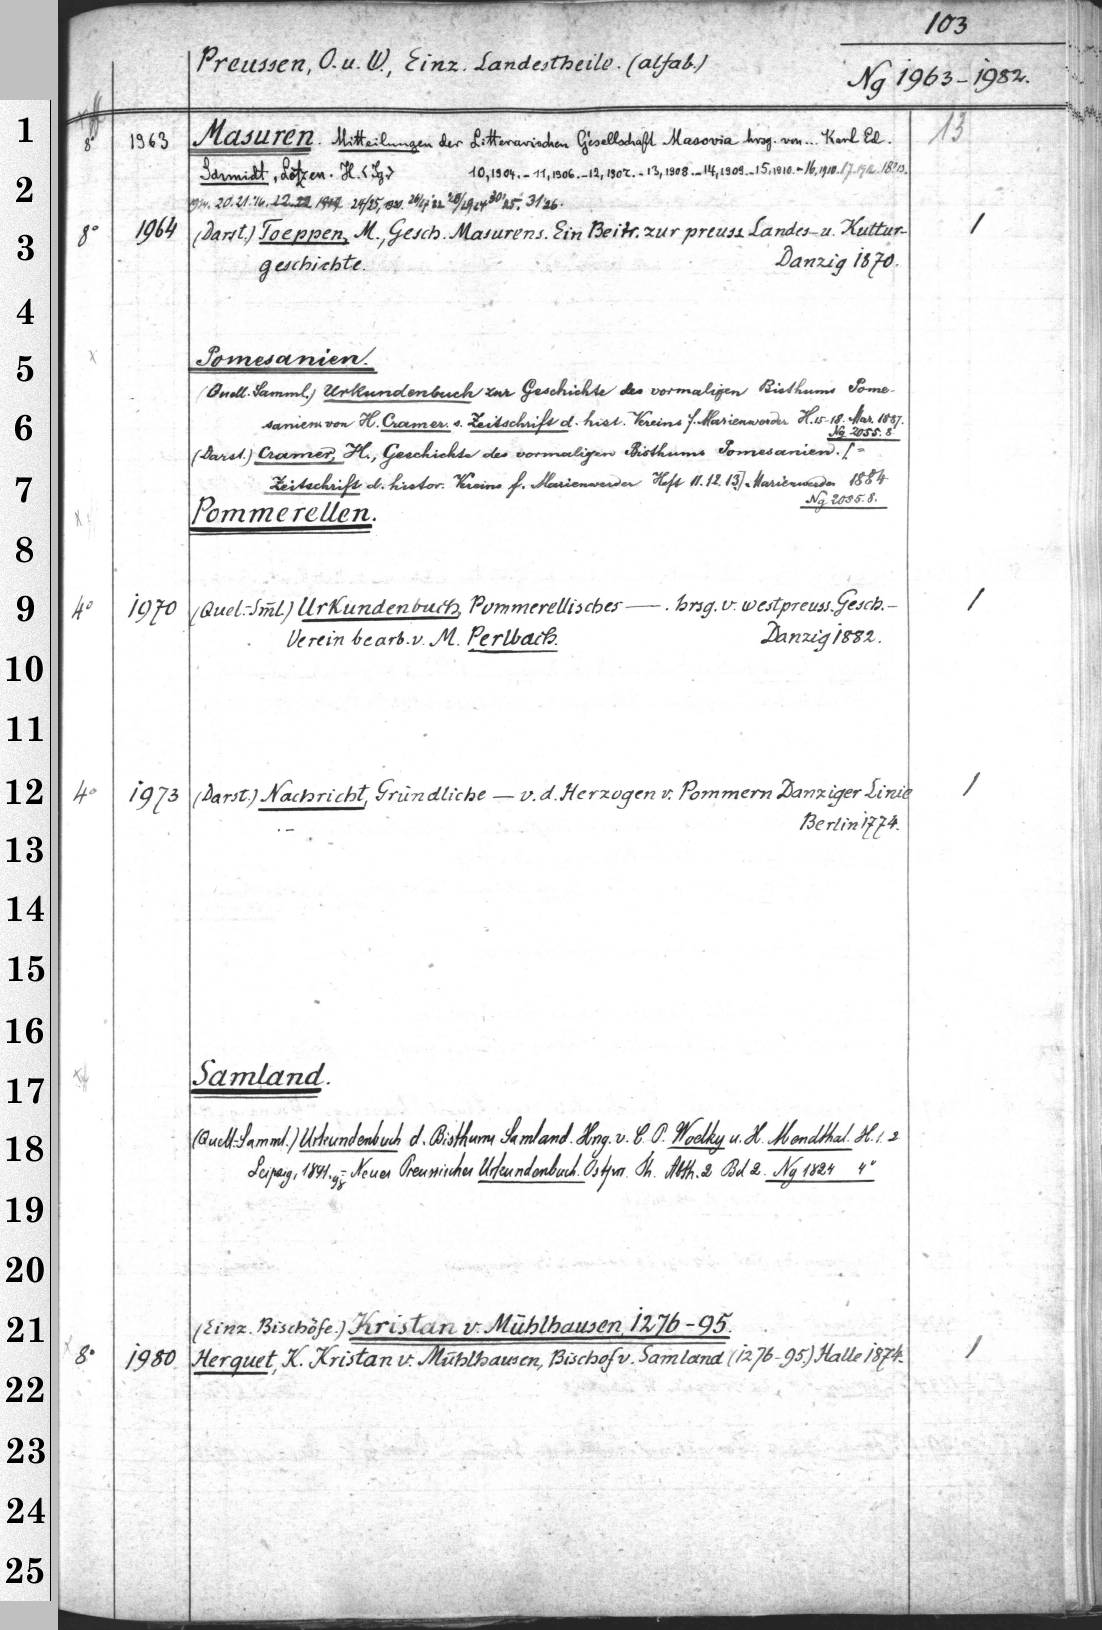 103
Preussen, O. u. W., Einz. Landestheile. (alfab.)
Ng 1963-1982.
1
8° 1963 Masuren. Mitteilungen der Litterarischen Gesellschaft Masovia hrsg. von... Karl Ed. 13
2
Schmidt, Lötzen. H. (Jg) 10, 1904. - 11, 1906. - 12, 1907. - 13, 1908. - 14, 1909. - 15, 1910. - 16, 1910.
20.21.'16. 24/25, 30/25. 31'26.
3
8° 1964 (Darst.) Toeppen, M., Gesch. Masurens. Ein Beitr. zur preuss Landes- u. Kultur- 1
geschichte. Danzig 1870.
4
5
Pomesanien.
(Quell. Samml.) Urkundenbuch zur Geschichte des vormaligen Bisthums Pome-
6
sanien von H. Cramer. s. Zeitschrift d. hist. Vereins f. Marienwerder H. 15-18. Mar. 1887.
Ng 2055. 8°
(Darst.) Cramer, H., Geschichte des vormaligen Bisthums Pomesanien. [=
7
Zeitschrift d. histor. Vereins f. Marienwerder Heft 11. 12. 13]. Marienwerder 1884
Ng 2055. 8.
Pommerellen.
8
9
4° 1970 (Quel.-Sml.) Urkundenbuch, Pommerellisches —. hrsg. v. westpreuss. Gesch.- 1
Verein bearb. v. M. Perlbach. Danzig 1882.
10
11
12
4° 1973 (Darst.) Nachricht, Gründliche — v. d. Herzogen v. Pommern Danziger Linie 1
Berlin 1774.
13
14
15
16
17
Samland.
18
(Quell-Samml.) Urkundenbuch d. Bisthums Samland. Hrsg. v. C. P. Woelky u. H. Mendthal. H. 1. 2
Leipzig, 1891. = Neues Preussisches Urkundenbuch. Ostpr. Th. Abth. 2 Bd 2. Ng 1824 4°
19
20
21
(Einz. Bischöfe.) Kristan v. Mühlhausen, 1276-95.
8° 1980 Herquet, K. Kristan v. Mühlhausen, Bischof v. Samland (1276-95.) Halle 1874. 1
22
23
24
25